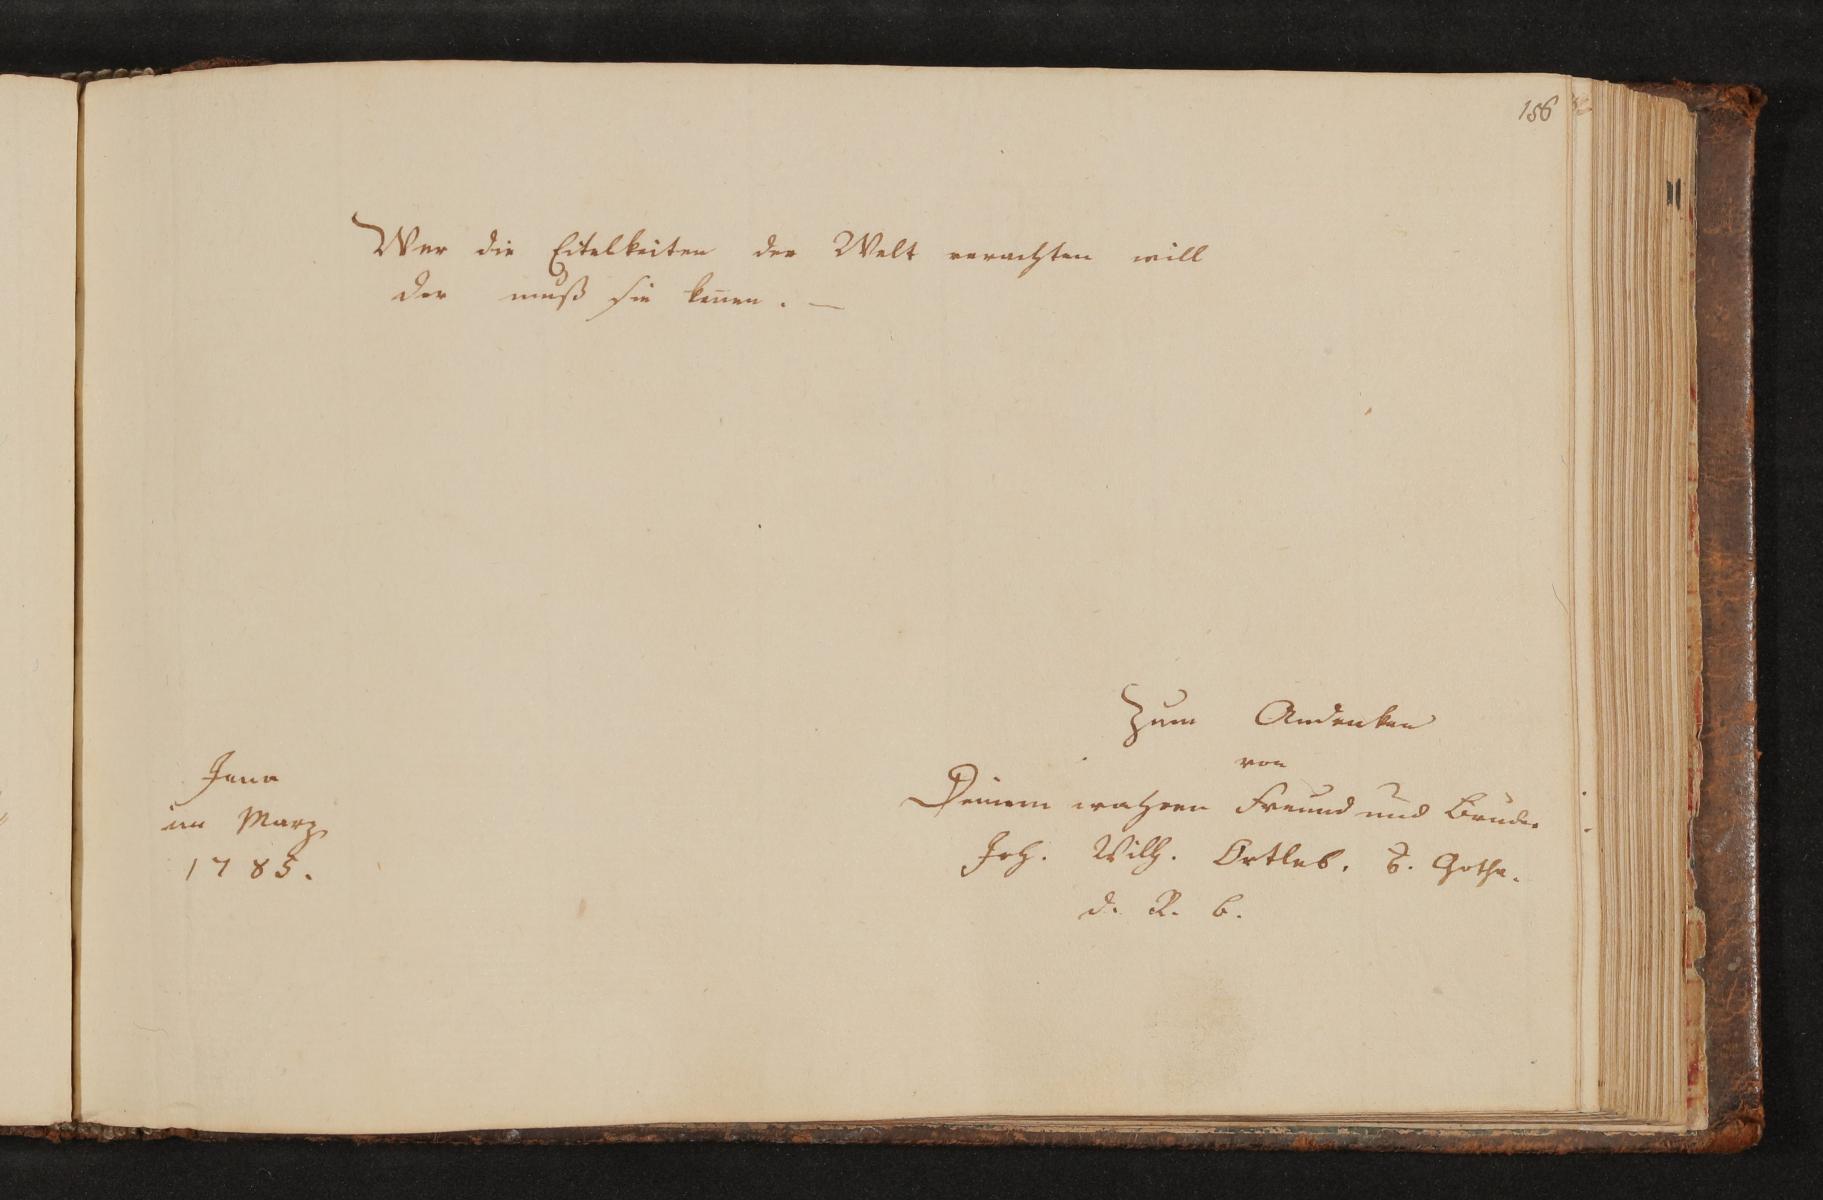 156
Wer die Eitelkeiten der Welt verachten will
der muß sie keñen. —
Zum Andenken
von
Deinem wahren Freund und Bruder
Joh. Wilh. Ortleb. Gotha.
d. R. b.
Jena
im Marz
1785.